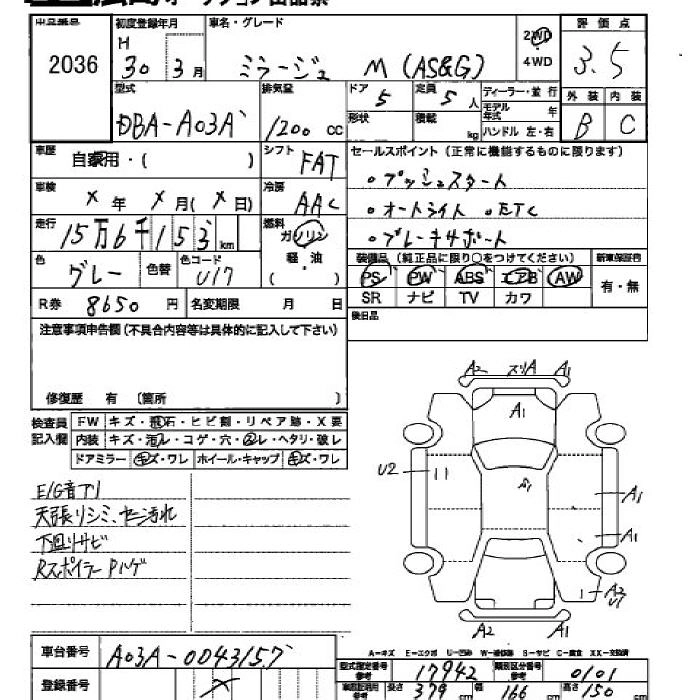 出品番号 初度登録年月 車名・グレード 評価点
2036 H 30 3月 ミラージュ M (AS&G) 2WD 4WD 3.5
型式 排気量 ドア 5 定員 5人 ディーラー・並行 外装 内装
DBA-A03A 1200 cc 形状 積載 kg モデル年式 年 ハンドル 左・右 B C
車歴 自家用・( ) シフト FAT セールスポイント (正常に機能するものに限ります)
。プッシュスタート
車検 × 年 × 月 (× 日) 冷房 AAC 。オートライト 。ETC
走行 15万6千153km 燃料 ガソリン 軽・油 ( ) 。ブレーキサポート
色 グレー 色替 色コード U17 装備品 (純正品に限り○をつけてください) 新車保証書
PS PW ABS エアB AW 有・無
R券 8650円 名変期限 月 日 SR ナビ TV カワ
注意事項申告欄(不具合内容等は具体的に記入して下さい) 後日品
修復歴 有 〔箇所 〕
検査員記入欄 FW キズ・飛石・ヒビ割・リペア跡・X要
内装 キズ・汚レ・コゲ・穴・スレ・ヘタリ・破レ
ドアミラー キズ・ワレ ホイール・キャップ キズ・ワレ
E/G音アリ
天張リシミ、ヤニ汚れ
下廻リサビ
Rスポイラー Pハゲ
A2 スリA A1
A1
U2
A1
A1
A1
A2 U1
A2 A1
A-キズ E-エクボ U-凹み W-補修跡 S-サビ C-腐食 XX-交換済
車台番号 A03A-0043157 型式指定番号 参考 17942 類別区分番号 参考 0101
登録番号 × 長さ 379 cm 幅 166 cm 高さ 150 cm